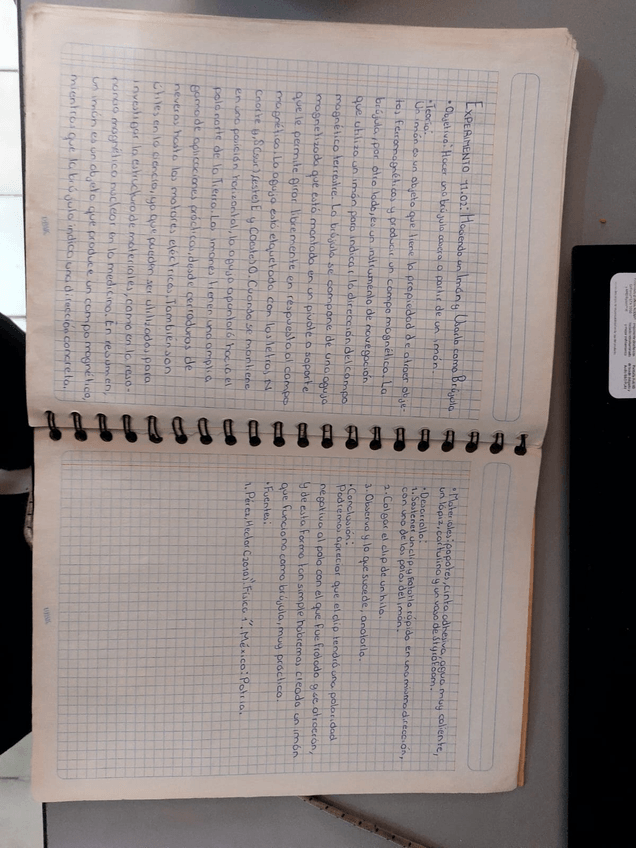 EXPERIMENTO 11.02: Haciendo un Imán y Usarlo como Brújula
• Objetivo: Hacer una brújula casera a partir de un imán.
• Teoría:
Un imán es un objeto que tiene la propiedad de atraer obje-
tos ferromagnéticos y producir un campo magnético. La
brújula, por otro lado, es un instrumento de navegación
que utiliza un imán para indicar la dirección del campo
magnético terrestre. La brújula se compone de una aguja
magnetizada que está montada en un pivote o soporte
que le permite girar libremente en respuesta al campo
magnético. La aguja está etiquetada con las letras N
(norte), S(sur), E(este) y O(oeste). Cuando se mantiene
en una posición horizontal, la aguja apuntará hacia el
polo norte de la Tierra. Los imanes tienen una amplia
gama de aplicaciones prácticas, desde cerraduras de
neveras hasta los motores eléctricos. También son
útiles en la ciencia, ya que pueden ser utilizados para
investigar la estructura de materiales, como en la reso-
nancia magnética nuclear en la medicina. En resumen,
un imán es un objeto que produce un campo magnético,
mientras que la brújula indica una dirección concreta.
• Materiales: popotes, cinta adhesiva, agua muy caliente,
un lápiz, cartulina y un vaso de Styrofoam.
• Desarrollo:
1. Sostener un clip y frotarlo rápido en una misma dirección,
con uno de los polos del imán.
2. Colgar el clip de un hilo.
3. Observa y lo que sucede, anótarlo.
• Conclusión:
Podremos apreciar que el clip tendrá una polaridad
negativa al polo con el que fue frotado y se atraerán,
y de esta forma tan simple habremos creado un imán
que funciona como brújula, muy práctico.
• Fuentes:
1. Pérez, Héctor (2010). "Física 1". México: Patria.